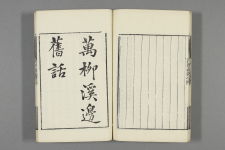 萬柳溪邊
舊話